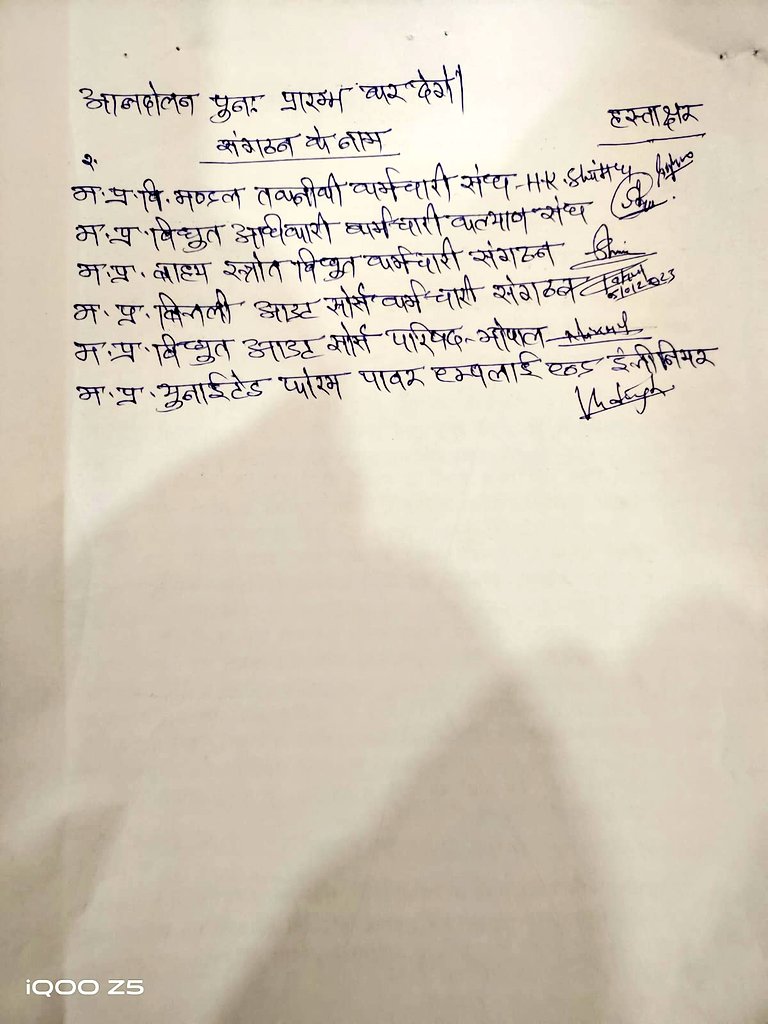 आन्दोलन पुनः प्रारम्भ कर देगें।
संगठन के नाम
हस्ताक्षर
२.
म.प्र.वि. मण्डल तकनीकी कर्मचारी संघ - H.K.
म.प्र. विद्युत अधिकारी कर्मचारी कल्याण संघ
म.प्र. बाह्य स्त्रोत विद्युत कर्मचारी संगठन
म.प्र. बिजली आउट सोर्स कर्मचारी संगठन
म.प्र. विद्युत आउट सोर्स परिषद - भोपाल
म.प्र. युनाईटेड फोरम पावर एम्पलाई एन्ड इंजीनियर
iQOO Z5